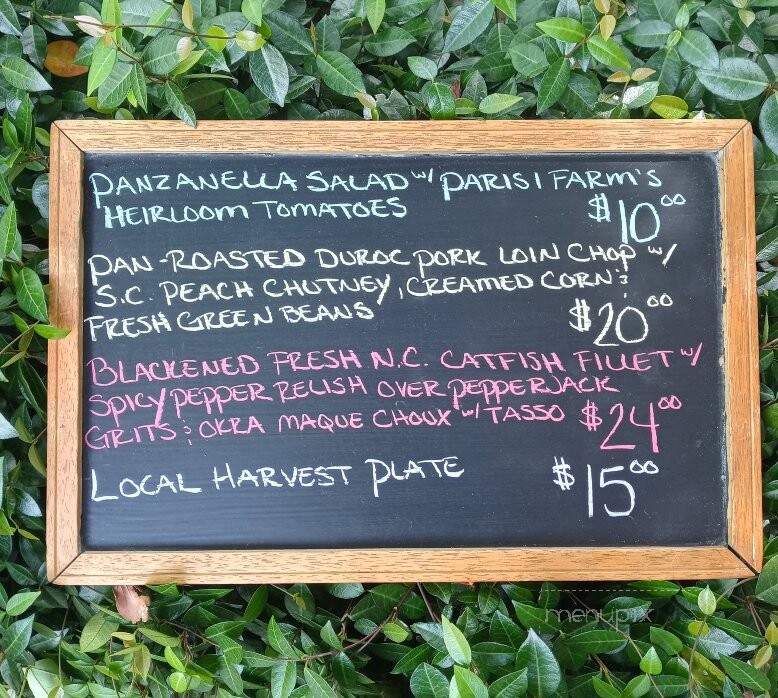 PANZANELLA SALAD w/ PARISI FARM'S
HEIRLOOM TOMATOES $10.00
PAN-ROASTED DUROC PORK LOIN CHOP w/
S.C. PEACH CHUTNEY, CREAMED CORN &
FRESH GREEN BEANS $20.00
BLACKENED FRESH N.C. CATFISH FILLET w/
SPICY PEPPER RELISH OVER PEPPERJACK
GRITS & OKRA MAQUE CHOUX w/ TASSO $24.00
LOCAL HARVEST PLATE $15.00
menupix